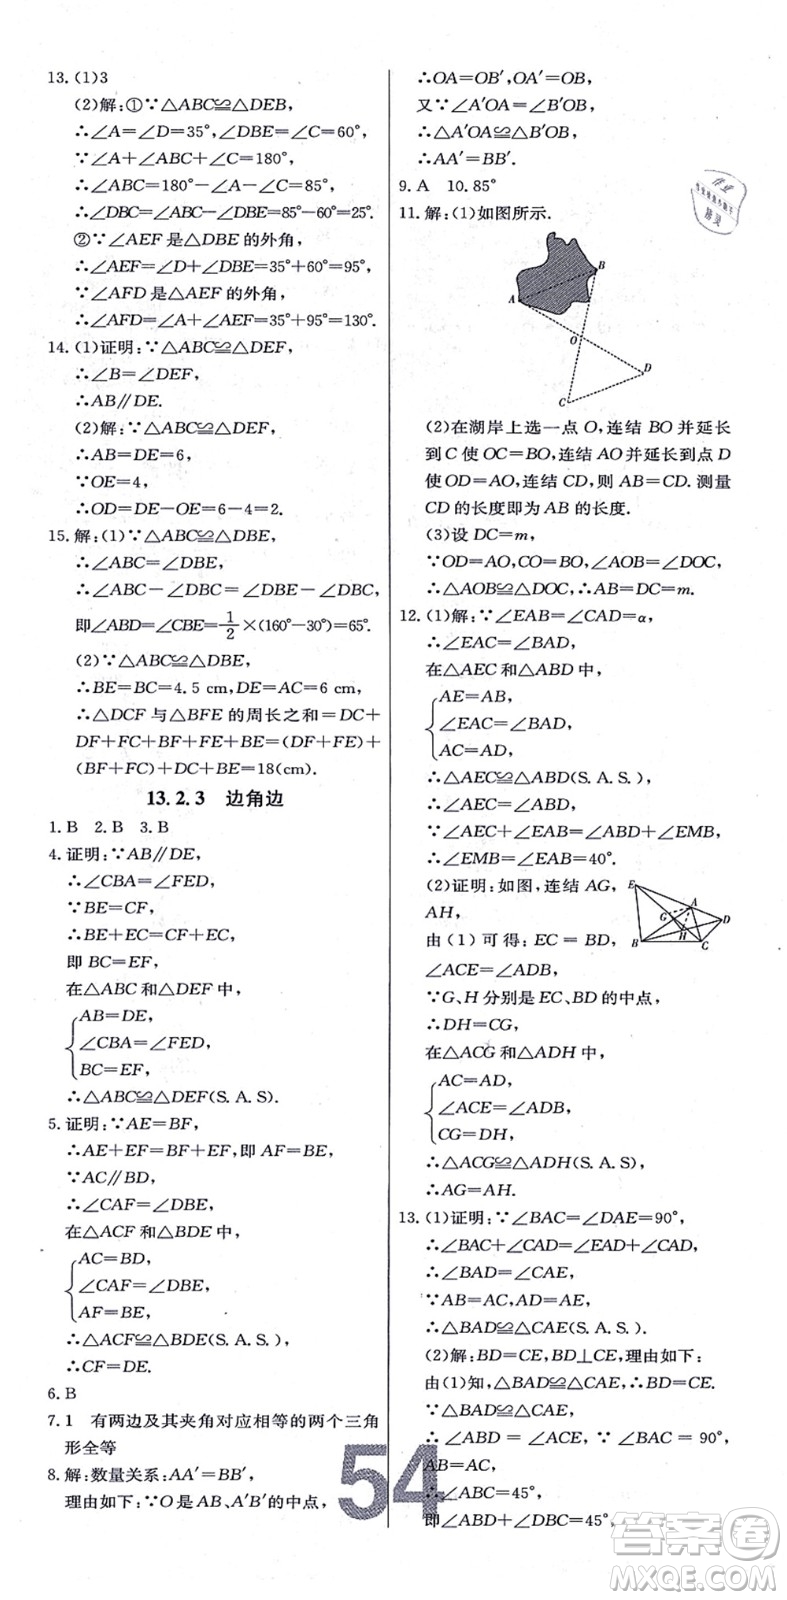 13. (1)3
(2)解:①∵△ABC≌△DEB,
∴∠A=∠D=35°,∠DBE=∠C=60°,
∵∠A+∠ABC+∠C=180°,
∴∠ABC=180°-∠A-∠C=85°,
∴∠DBC=∠ABC-∠DBE=85°-60°=25°.
②∵∠AEF是△DBE的外角,
∴∠AEF=∠D+∠DBE=35°+60°=95°,
∵∠AFD是△AEF的外角,
∴∠AFD=∠A+∠AEF=35°+95°=130°.
14. (1)证明:∵△ABC≌△DEF,
∴∠B=∠DEF,
∴AB∥DE.
(2)解:∵△ABC≌△DEF,
∴AB=DE=6,
∵OE=4,
∴OD=DE-OE=6-4=2.
15. 解:(1)∵△ABC≌△DBE,
∴∠ABC=∠DBE,
∴∠ABC-∠DBC=∠DBE-∠DBC,
即∠ABD=∠CBE=1/2×(160°-30°)=65°.
(2)∵△ABC≌△DBE,
∴BE=BC=4.5 cm,DE=AC=6 cm,
∴△DCF与△BFE的周长之和=DC+
DF+FC+BF+FE+BE=(DF+FE)+
(BF+FC)+DC+BE=18(cm).
13.2.3 边角边
1. B 2. B 3. B
4. 证明:∵AB∥DE,
∴∠CBA=∠FED,
∵BE=CF,
∴BE+EC=CF+EC,
即BC=EF,
在△ABC和△DEF中,
AB=DE,
∠CBA=∠FED,
BC=EF,
∴△ABC≌△DEF(S.A.S).
5. 证明:∵AE=BF,
∴AE+EF=BF+EF,即AF=BE,
∵AC∥BD,
∴∠CAF=∠DBE,
在△ACF和△BDE中,
AC=BD,
∠CAF=∠DBE,
AF=BE,
∴△ACF≌△BDE(S.A.S.),
∴CF=DE.
6. B
7. 1 有两边及其夹角对应相等的两个三角
形全等
8. 解:数量关系:AA′=BB′,
理由如下:∵O是AB、A′B′的中点,
∴OA=OB′,OA′=OB,
又∵∠A′OA=∠B′OB,
∴△A′OA≌△B′OB,
∴AA′=BB′.
9. A 10. 85°
11. 解:(1)如图所示.
A
B
O
D
C
(2)在湖岸上选一点O,连结BO并延长
到C使OC=BO,连结AO并延长到点D
使OD=AO,连结CD,则AB=CD.测量
CD的长度即为AB的长度.
(3)设DC=m,
∵OD=AO,CO=BO,∠AOB=∠DOC,
∴△AOB≌△DOC,∴AB=DC=m.
12. (1)解:∵∠EAB=∠CAD=α,
∴∠EAC=∠BAD,
在△AEC和△BAD中,
AE=AB,
∠EAC=∠BAD,
AC=AD,
∴△AEC≌△ABD(S.A.S),
∴∠AEC=∠ABD,
∵∠AEC+∠EAB=∠ABD+∠EMB,
∴∠EMB=∠EAB=40°.
(2)证明:如图,连结AG,
AH,
由(1)可得:EC=BD,
∠ACE=∠ADB,
E
A
G
D
H
B
C
∵G、H分别是EC、BD的中点,
∴DH=CG,
在△ACG和△ADH中,
AC=AD,
∠ACE=∠ADB,
CG=DH,
∴△ACG≌△ADH(S.A.S),
∴AG=AH.
13. (1)证明:∵∠BAC=∠DAE=90°,
∴∠BAC+∠CAD=∠DAE+∠CAD,
∴∠BAD=∠CAE,
∵AB=AC,AD=AE,
∴△BAD≌△CAE(S.A.S).
(2)解:BD=CE,BD⊥CE,理由如下:
由(1)知,△BAD≌△CAE,∴BD=CE.
∵△BAD≌△CAE,
∴∠ABD=∠ACE,∵∠BAC=90°,
AB=AC,
∴∠ABC=45°,
即∠ABD+∠DBC=45°,
54
答案卷
MXQE.COM